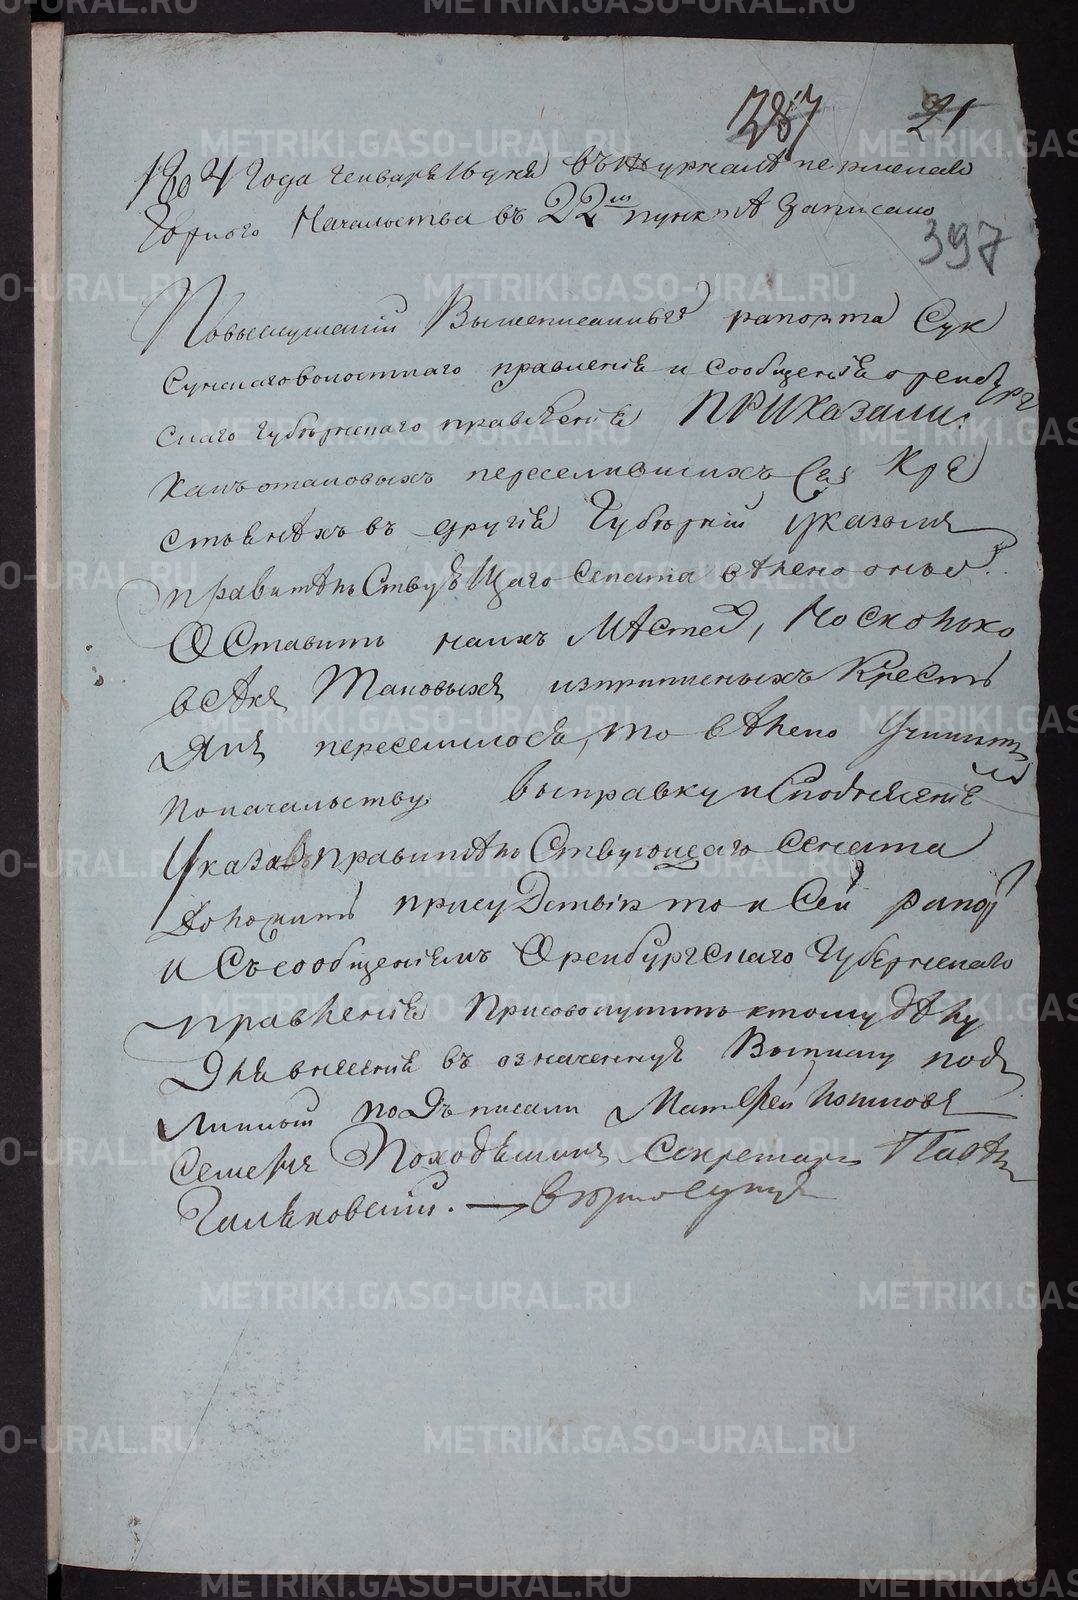 287 21
1804 года генваря 16 дня въ журнале пермскаго
Горнаго Начальства въ 22м пункте записано
397
Повыслушании Вышеписаннаго рапорта Сук
сунскаго волостнаго правления и сообщения оренбург
скаго губернскаго правления ПРИКазали:
какъ отаковыхъ переселившихъ Ся Кре
стьянехъ въ другие Губернии Указомъ
правительСтвующаго Сената велено оныхъ
ОСтавить наихъ Местей, Носколько
всехъ Таковыхъ изприписныхъ Кресть
Янъ переселилося, то велено Учинить
поначальству выправку и Сподънесение
Указа правительСтвующаго Сената
Доложить присуДствию то и Сей рапор
и Съсообщениемъ Оренбургскаго Губернскаго
правления присовокупить ктому делу
Для внесения въ означенную Выписку под
Линной поДъписали Матфей Логиновъ
Семенъ Походяшинъ Секретарь Павел
Галяковский.